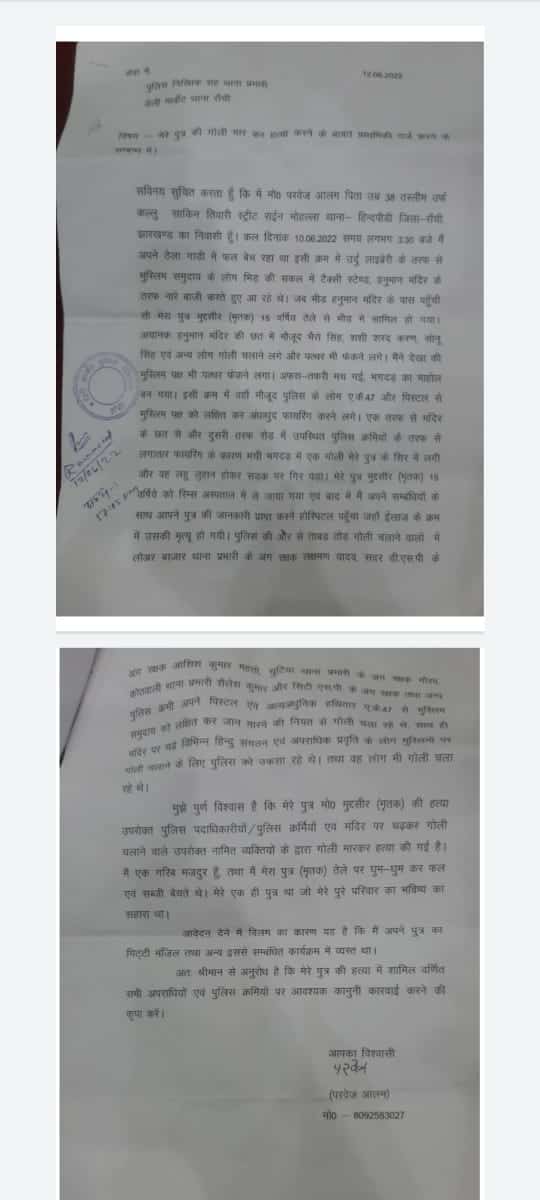 सेवा में,
12.06.2022
पुलिस निरिक्षक सह थाना प्रभारी
डेली मार्केट थाना राँची
विषय :- मेरे पुत्र की गोली मार कर हत्या करने के बाबत प्राथमिकी दर्ज करने के
सम्बन्ध में।
सविनय सुचित करता हूँ कि मैं मो0 परवेज आलम पिता उम्र 38 तस्लीम उर्फ
कल्लु साकिन तिवारी स्ट्रीट राईन मोहल्ला थाना- हिन्दपीढी जिला-राँची
झारखण्ड का निवासी हूँ। कल दिनांक 10.06.2022 समय लगभग 3:30 बजे मैं
अपने ठेला गाड़ी में फल बेच रहा था इसी क्रम में उर्दु लाइब्रेरी के तरफ से
मुस्लिम समुदाय के लोग भिड़ की सकल में टैक्सी स्टेण्ड, हनुमान मंदिर के
तरफ नारे बाजी करते हुए आ रहे थे। जब भीड़ हनुमान मंदिर के पास पहुँची
तो मेरा पुत्र मुद्दसीर (मृतक) 15 वर्षिय ठेले से भीड़ में सामिल हो गया।
अचानक हनुमान मंदिर की छत में मौजूद भैरा सिंह, शशी शरद करण, सोनू
सिंह एवं अन्य लोग गोली चलाने लगे और पत्थर भी फेंकने लगे। मैंने देखा की
मुस्लिम पक्ष भी पत्थर फेंकने लगा। अफरा-तफरी मच गई, भगदड़ का माहोल
बन गया। इसी क्रम में वहाँ मौजूद पुलिस के लोग ए.के.47 और पिस्टल से
मुस्लिम पक्ष को लक्षित कर अंधाधुंद फायरिंग करने लगे। एक तरफ से मंदिर
के छत से और दुसरी तरफ रोड में उपस्थित पुलिस क्रमियों के तरफ से
लगातार फायरिंग के कारण मची भगदड़ में एक गोली मेरे पुत्र के सिर में लगी
और वह लहु लुहान होकर सड़क पर गिर पड़ा। मेरे पुत्र मुद्दसीर (मृतक) 15
वर्षिय को रिम्स अस्पताल में ले जाया गया एवं बाद में मैं अपने सम्बंधियों के
साथ आपने पुत्र की जानकारी प्राप्त करने होस्पिटल पहुँचा जहाँ ईलाज के क्रम
में उसकी मृत्यू हो गयी। पुलिस की और से ताबड़ तोड़ गोली चलाने वालों में
लोअर बाजार थाना प्रभारी के अंग रक्षक लक्षमण यादव, सदर डी.एस.पी के
Received
12/06/22
अंग रक्षक आशिश कुमार महतो, चुटिया थाना प्रभारी के अंग रक्षक गौरव,
कोतवाली थाना प्रभारी शैलेश कुमार और सिटी एस.पी के अंग रक्षक तथा अन्य
पुलिस क्रमी अपने पिस्टल एवं अत्यधुनिक हथियार ए.के.47 से मुस्लिम
समुदाय को लक्षित कर जान मारने की नियत से गोली चला रहे थे, साथ ही
मंदिर पर चढ़े विभिन्न हिन्दु संगठन एवं अपराधिक प्रवृति के लोग मुस्लिमो पर
गोली चलाने के लिए पुलिस को उकसा रहे थे। तथा वह लोग भी गोली चला
रहे थे।
मुझे पुर्ण विश्वास है कि मेरे पुत्र मो0 मुद्दसीर (मृतक) की हत्या
उपरोक्त पुलिस पदाधिकारीयों/पुलिस क्रर्मियों एवं मंदिर पर चढ़कर गोली
चलाने वाले उपरोक्त नामित व्यक्तियों के द्वारा गोली मारकर हत्या की गई है।
मैं एक गरिब मजदुर हूँ, तथा मैं मेरा पुत्र (मृतक) ठेले पर घुम-घुम कर फल
एवं सब्जी बेचते थे। मेरे एक ही पुत्र था जो मेरे पुरे परिवार का भविष्य का
सहारा था।
आवेदन देने में विलम का कारण यह है कि मैं अपने पुत्र का
मिट्टी मंजिल तथा अन्य इससे सम्बंधित कार्यक्रम में व्यस्त था।
अतः श्रीमान से अनुरोध है कि मेरे पुत्र की हत्या में शामिल वर्णित
सभी अपराधियों एवं पुलिस क्रमियों पर आवश्यक कानुनी कारवाई करने की
कृपा करें।
आपका विश्वासी
परवेज
(परवेज आलम)
मो0 - 8092583027